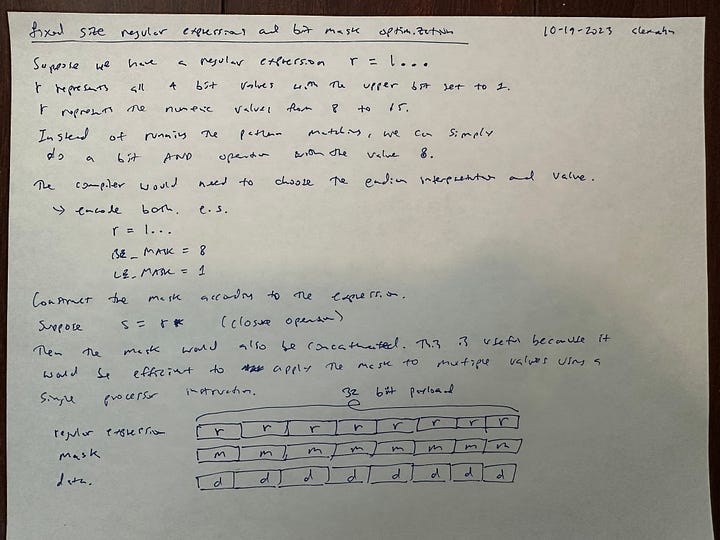 fixed size regular expressions and bit mask optimization 10-19-2023 alexahn
Suppose we have a regular expression r = 1...
r represents all 4 bit values with the upper bit set to 1.
r represents the numeric values from 8 to 15.
Instead of running the pattern matching, we can simply
do a bit AND operation with the value 8.
The compiler would need to choose the endian interpretation and value.
↳ encode both. e.g.
r = 1...
BE_MASK = 8
LE_MASK = 1
Construct the mask according to the expression.
Suppose s = r* (closure operator)
Then the mask would also be concatenated. This is useful because it
would be efficient to apply the mask to multiple values using a
single processor instruction.
32 bit payload
regular expression r r r r r r r r
mask m m m m m m m m
data. d d d d d d d d